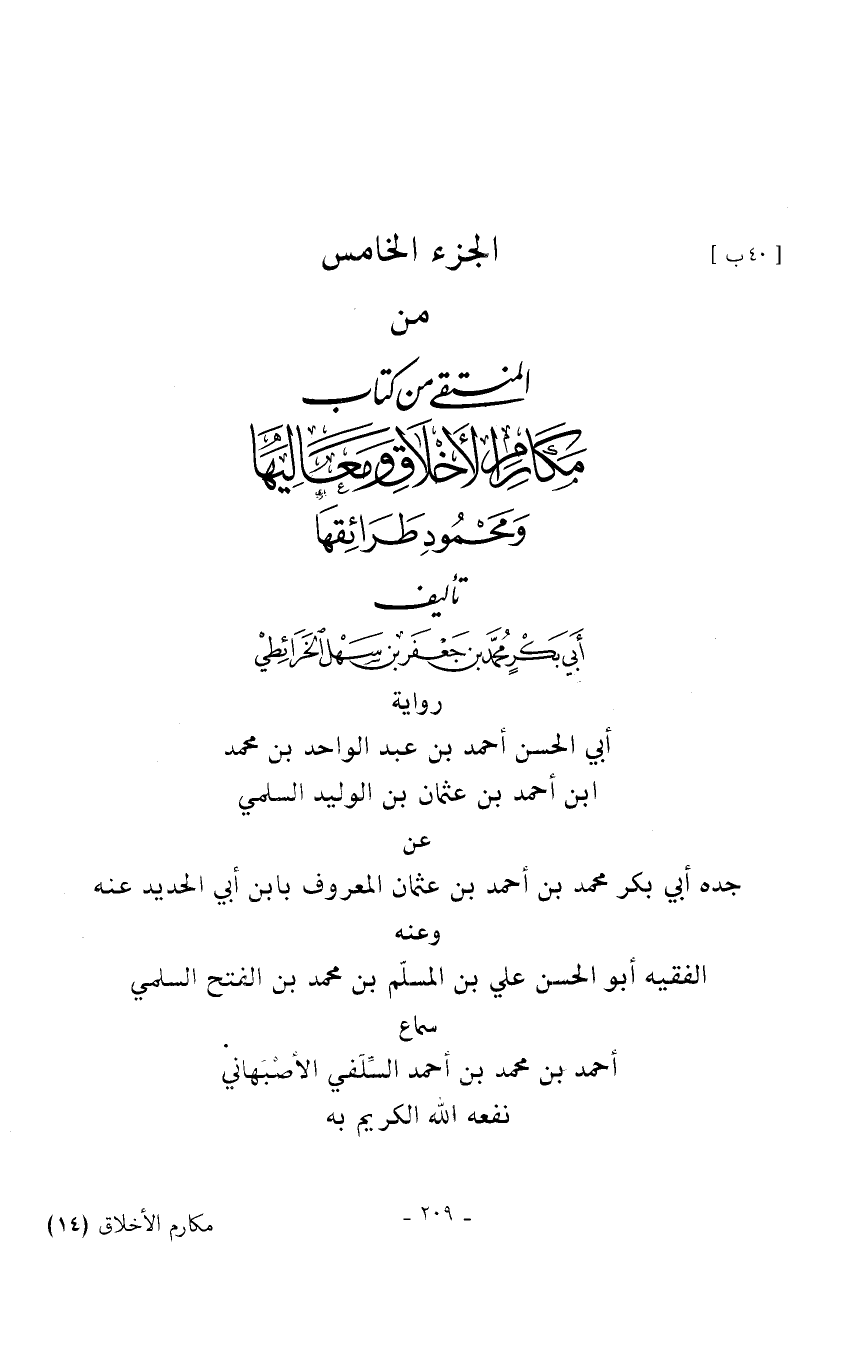 [ ٤٠ ب ]
الجزء الخامس
من
المنتقى من كتاب
مَكَارِمِ الأَخْلَاقِ وَمَعَالِيهَا
وَمَحْمُودِ طَرَائِقِهَا
تأليف
أَبِي بَكْرٍ مُحَمَّدِ بْنِ جَعْفَرِ بْنِ سَهْلٍ الخَرَائِطِيّ
رواية
أبي الحسن أحمد بن عبد الواحد بن محمد
ابن أحمد بن عثمان بن الوليد السلمي
عن
جده أبي بكر محمد بن أحمد بن عثمان المعروف بابن أبي الحديد عنه
وعنه
الفقيه أبو الحسن علي بن المسلّم بن محمد بن الفتح السلمي
سماع
أحمد بن محمد بن أحمد السِّلَفي الأصْبَهاني
نفعه الله الكريم به
- ٢٠٩ -
مكارم الأخلاق (١٤)